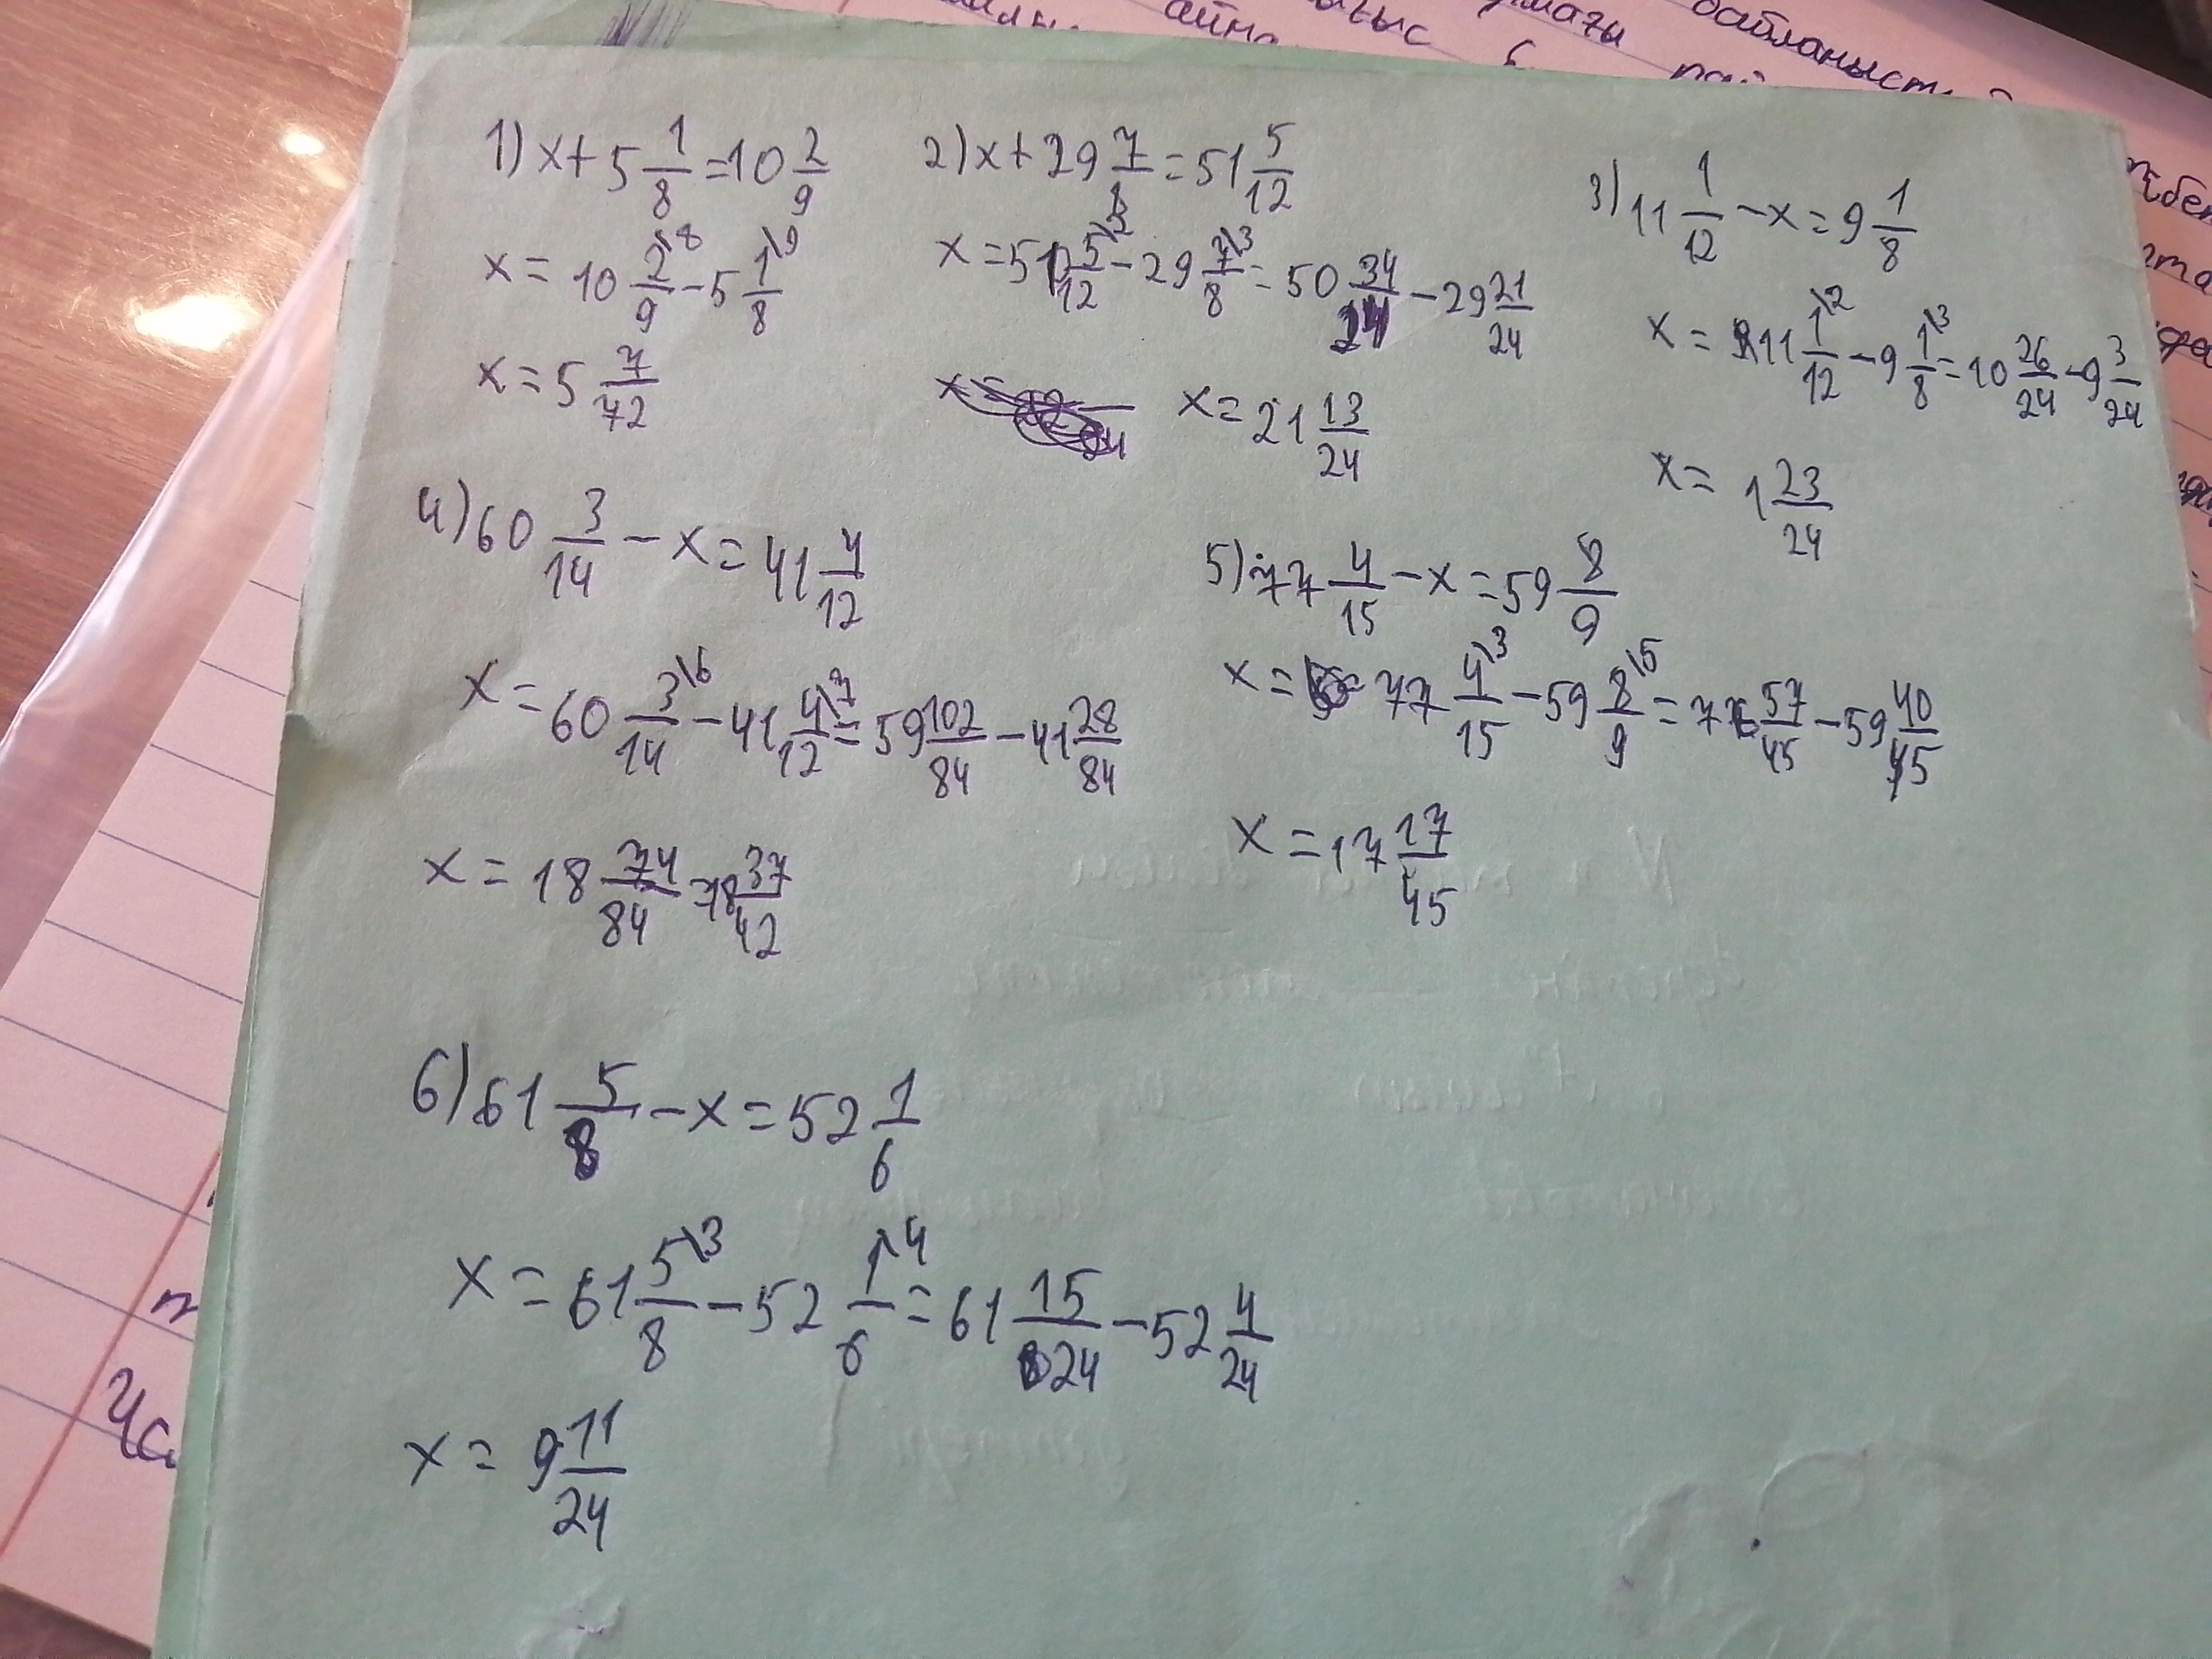 байланысты
1) x + 5 1/8 = 10 2/9
x = 10 2\8/9 - 5 1\9/8
x = 5 7/72
2) x + 29 7/8 = 51 5/12
x = 51 5\2/12 - 29 7\3/8 = 50 34/24 - 29 21/24
x = 21 13/24
3) 11 1/12 - x = 9 1/8
x = 11 1\2/12 - 9 1\3/8 = 10 26/24 - 9 3/24
x = 1 23/24
4) 60 3/14 - x = 41 4/12
x = 60 3\6/14 - 41 4\7/12 = 59 102/84 - 41 28/84
x = 18 74/84 = 18 37/42
5) 77 4/15 - x = 59 8/9
x = 77 4\3/15 - 59 8\5/9 = 76 57/45 - 59 40/45
x = 17 17/45
6) 61 5/8 - x = 52 1/6
x = 61 5\3/8 - 52 1\4/6 = 61 15/24 - 52 4/24
x = 9 11/24